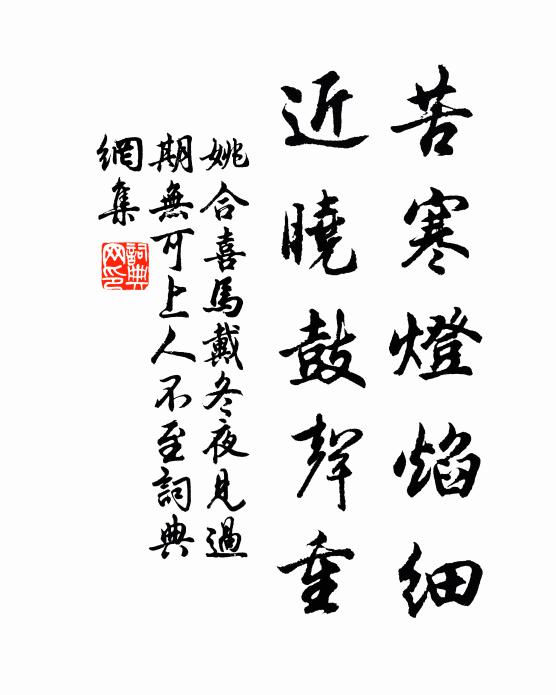 苦寒燈焰細
近曉鼓聲重
姚合喜馬戴冬夜見過
期無可上人不至詞典
網集
詞典
網印